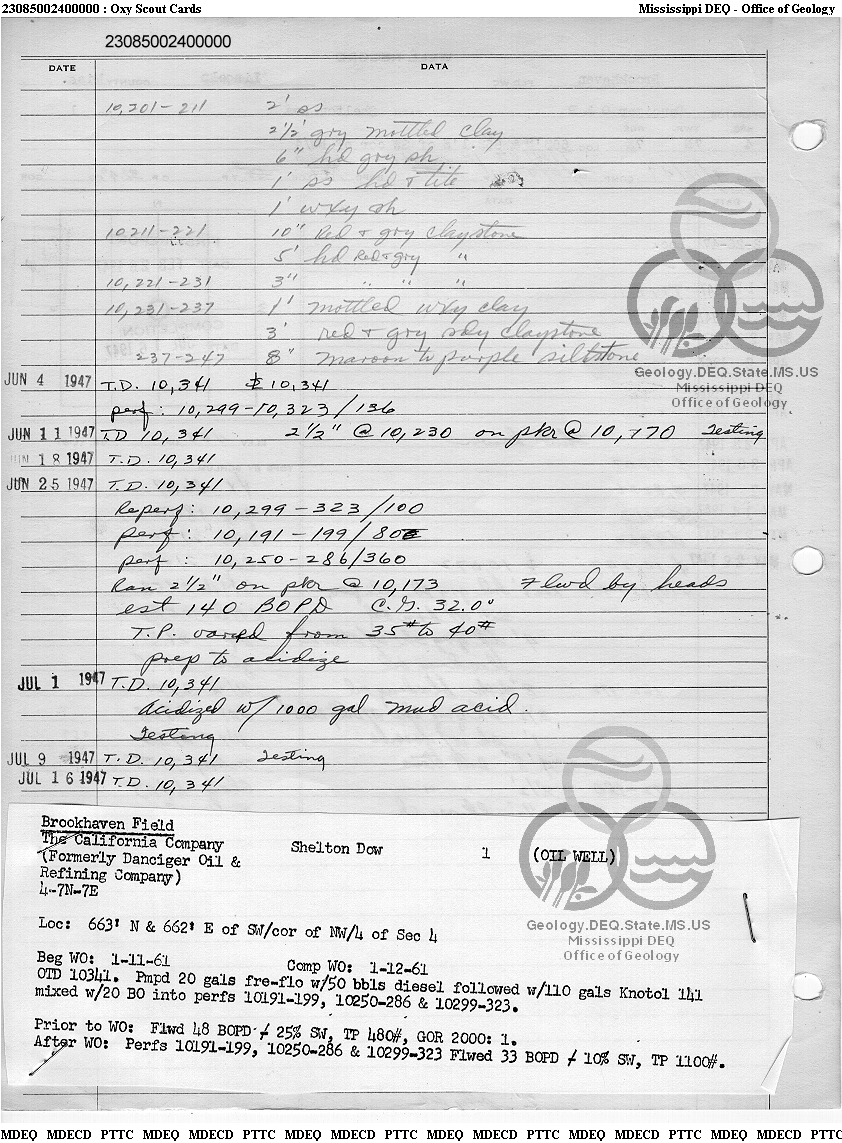 23085002400000 : Oxy Scout Cards Mississippi DEQ - Office of Geology
23085002400000
DATE DATA
10,201-211 2' ss
2 1/2' gry mottled clay
6" hd gry sh
1' ss hd & tite
1' wxy sh
10211-221 10" Red & gry claystone
5' hd Red & gry "
10,221-231 3" " " "
10,231-237 1' mottled wxy clay
3' red & gry sdy claystone
237-247 8" maroon to purple siltstone
Geology.DEQ.State.MS.US
Mississippi DEQ
Office of Geology
JUN 4 1947 T.D. 10,341 10,341
perf: 10,299-10,323/136
JUN 11 1947 T.D 10,341 2 1/2" @ 10,230 on pkr @ 10,170 Testing
JUN 18 1947 T.D. 10,341
JUN 25 1947 T.D. 10,341
Reperf: 10,299-323/100
perf: 10,191-199/80
perf: 10,250-286/360
Ran 2 1/2" on pkr @ 10,173 Flwd by heads
est 140 BOPD C.G. 32.0°
T.P. varied from 35# to 40#
prep to acidize
JUL 1 1947 T.D. 10,341
Acidized w/ 1000 gal mud acid.
Testing
JUL 9 1947 T.D. 10,341 Testing
JUL 16 1947 T.D. 10,341
Brookhaven Field
The California Company Shelton Dow 1 (OIL WELL)
(Formerly Danciger Oil &
Refining Company)
4-7N-7E
Loc: 663' N & 662' E of SW/cor of NW/4 of Sec 4
Geology.DEQ.State.MS.US
Mississippi DEQ
Office of Geology
Beg WO: 1-11-61 Comp WO: 1-12-61
OTD 10341. Pmpd 20 gals fre-flo w/50 bbls diesel followed w/110 gals Knotol 141
mixed w/20 BO into perfs 10191-199, 10250-286 & 10299-323.
Prior to WO: Flwd 48 BOPD / 25% SW, TP 480#, GOR 2000: 1.
After WO: Perfs 10191-199, 10250-286 & 10299-323 Flwed 33 BOPD / 10% SW, TP 1100#.
MDEQ MDECD PTTC MDEQ MDECD PTTC MDEQ MDECD PTTC MDEQ MDECD PTTC MDEQ MDECD PTTC MDEQ MDECD PTTC